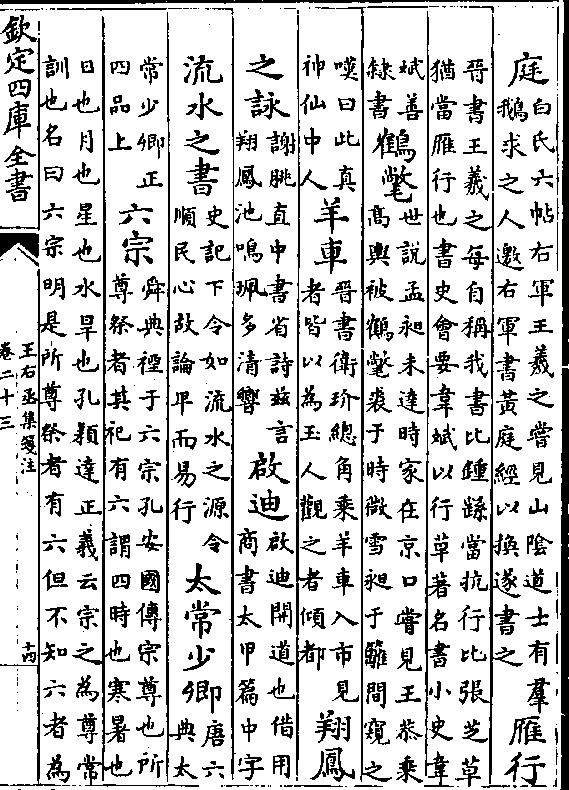 庭白氏六帖右軍王羲之嘗見山陰道士有羣鵝求之人邀右軍書黄庭經以換遂書之雁行
晉書王羲之每自稱我書比鍾繇當抗行比張芝草猶當雁行也書史會要韋斌以行草著名書小史韋
斌善隸書鶴氅世說孟昶未達時家在京口嘗見王恭乗高輿被鶴氅裘于時微雪昶于籬間窺之
嘆曰此真神仙中人羊車晉書衛玠總角乘羊車入市見者皆以為玉人觀之者傾都翔鳳
之詠謝朓直中書省詩兹言翔鳳池鳴珮多清響啟迪啟迪開道也借用商書太甲篇中字
流水之書史記下令如流水之源令順民心故論卑而易行太常少卿唐六典太
常少卿正四品上六宗舜典禋于六宗孔安國傳宗尊也所尊祭者其祀有六謂四時也寒暑也
日也月也星也水旱也孔穎達正義云宗之為尊常訓也名曰六宗明是所尊祭者有六但不知六者為
欽定四庫全書
王右丞集箋注
卷二十三
十四